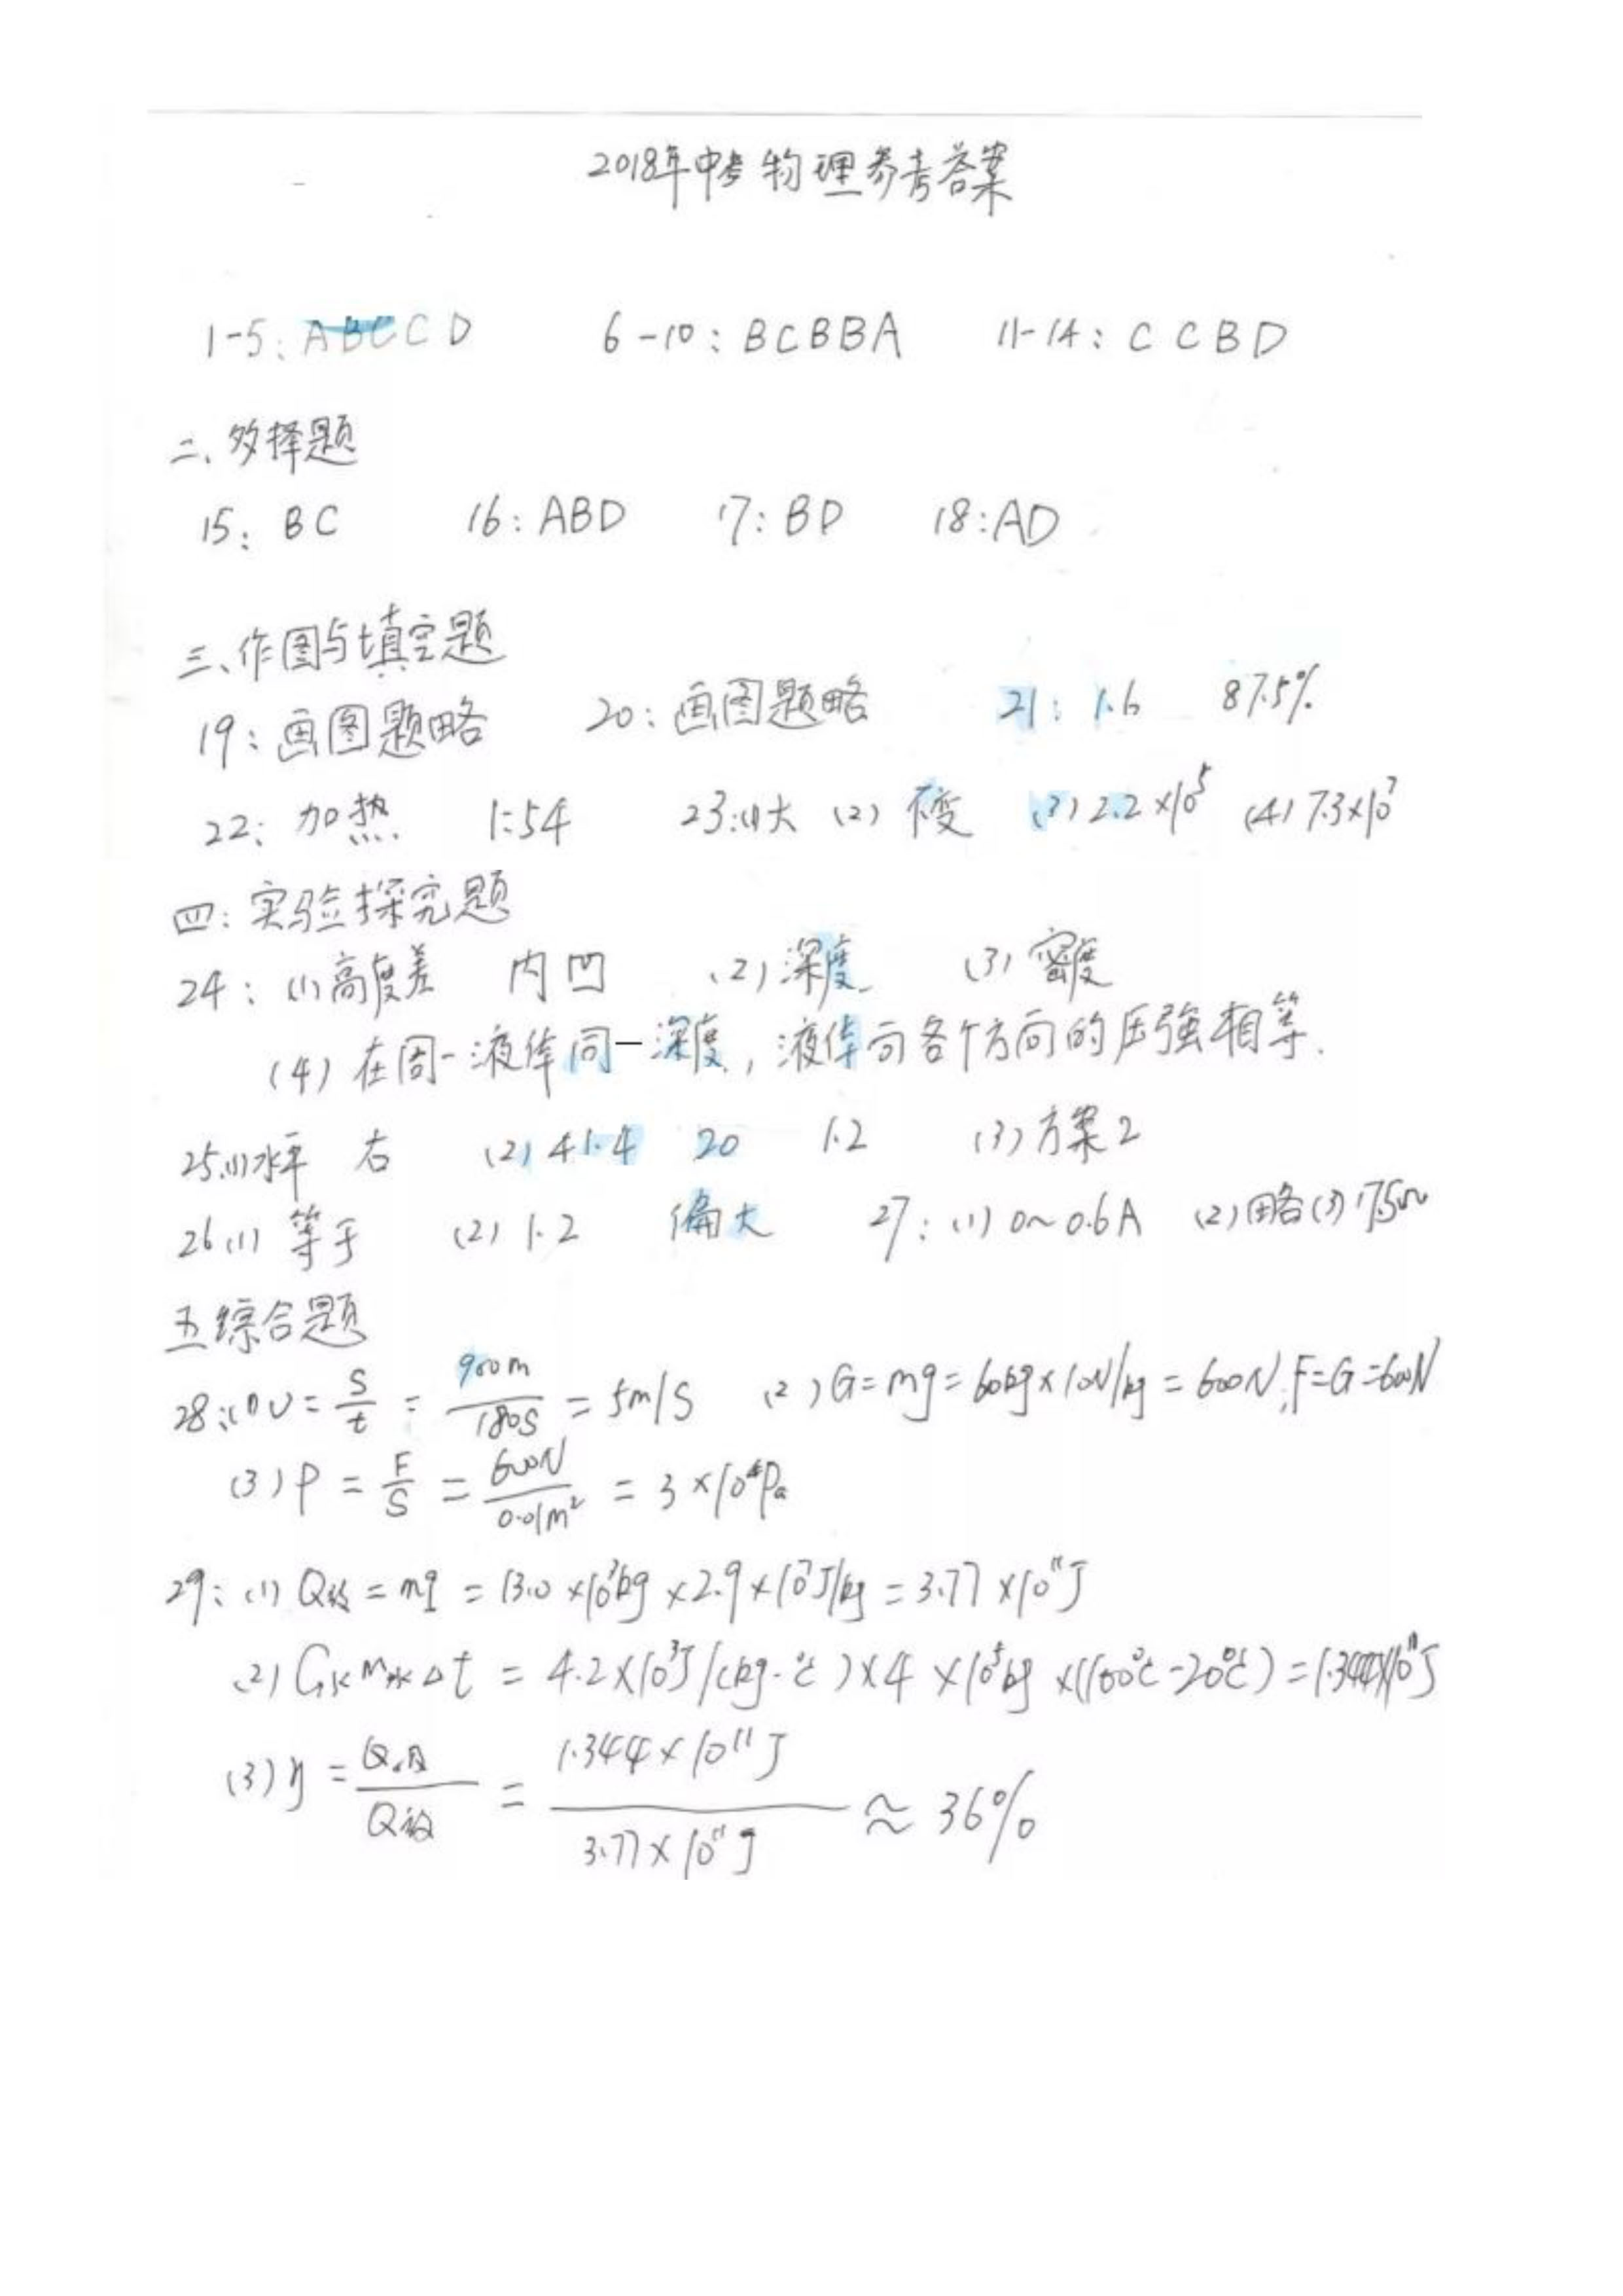 2018年中考物理参考答案
1-5: ABCCD 6-10: BCBBA 11-14: CCBD
二、多择题
15: BC 16: ABD 17: BD 18: AD
三、作图与填空题
19: 画图题略 20: 画图题略 21: 1.6 87.5%
22: 加热 1:54 23:(1)大 (2) 不变 (3) 2.2×10⁵ (4) 7.3×10³
四: 实验探究题
24: (1)高度差 内凹 (2)深度 (3)密度
(4) 在同一液体同一深度,液体向各个方向的压强相等.
25.(1)水平 右 (2) 41.4 20 1.2 (3)方案2
26(1) 等于 (2) 1.2 偏大 27: (1) 0~0.6A (2)略(3) 17.5Ω
五综合题
28:(1) V = S/t = 900m/180S = 5m/S (2) G=mg=60kg×10N/kg=600N,F=G=600N
(3) P = F/S = 600N/0.01m² = 3×10⁴Pa
29: (1) Q放 = mq = 13.0×10³kg×2.9×10⁷J/kg = 3.77×10¹¹J
(2) C水m水△t = 4.2×10³J/(kg·℃)×4×10⁵kg×(100℃-20℃) = 1.344×10¹¹J
(3) η = Q吸/Q放 = 1.344×10¹¹J/3.77×10¹¹J ≈ 36%